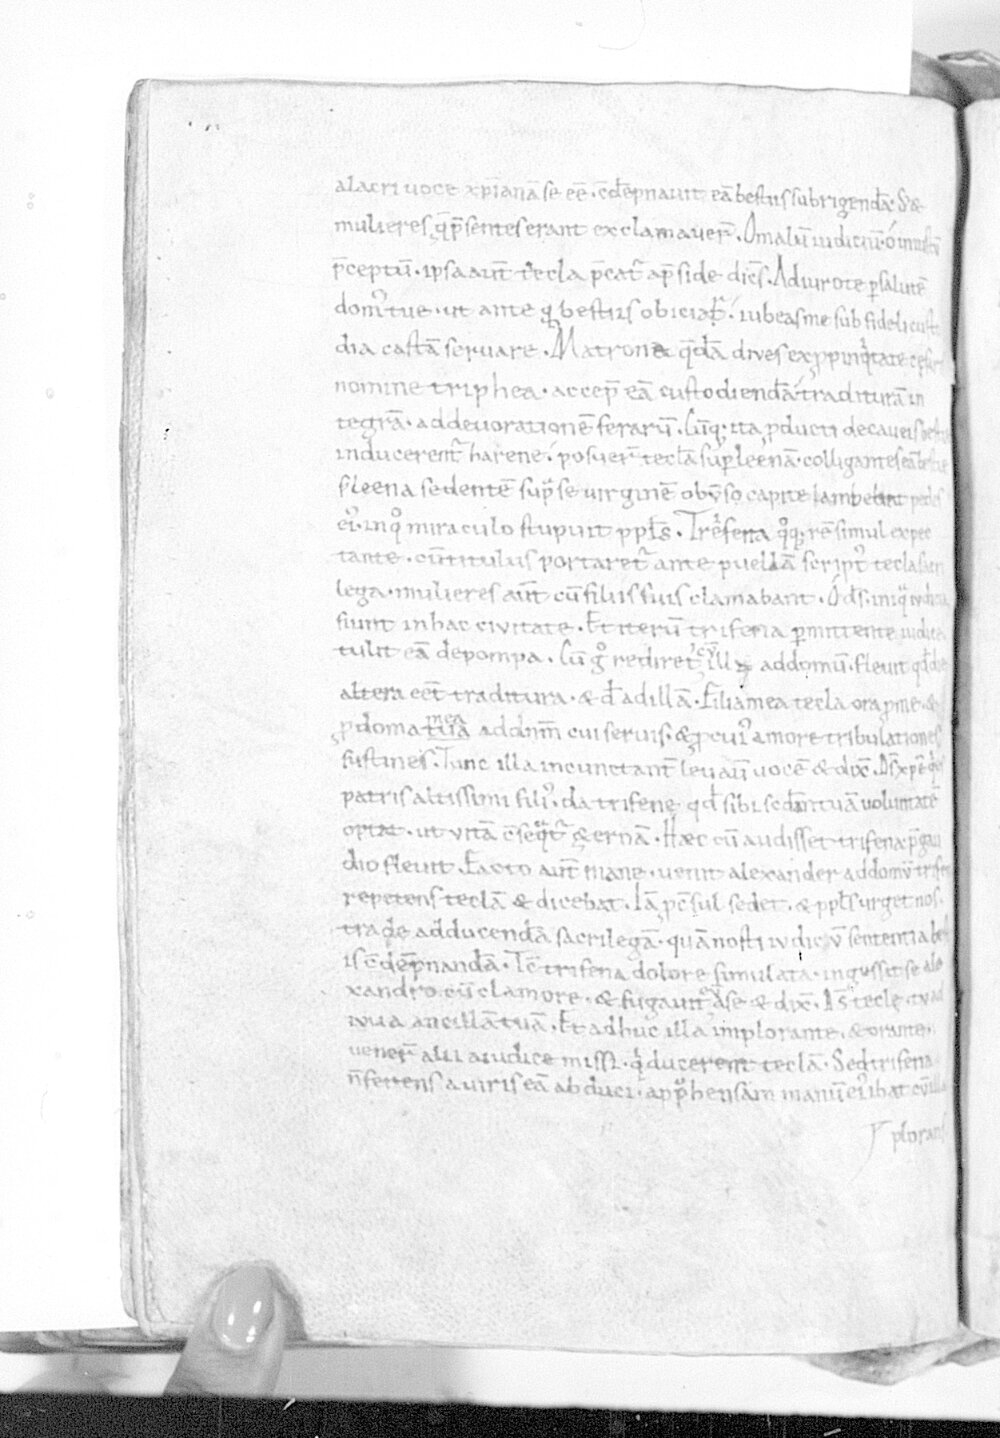 alacri uoce xp̄ianā se eē. c̄dēpnauit eā bestiis subrigendā. S&
mulieres q̄ p̄sentes erant exclamauer̄. O malū iudiciū. o iniustū
p̄ceptū. ipsa aut̄ tecla p̄cat̄ ap̄side dic̄s. Adiuro te p̄ salutē
dom̄ tue. ut ante q̄ bestiis obiciar̄. iubeas me sub fideli custo
dia castā seruare. Matrona q̄dā diues ex ppinq̄tate
nomine triphea. accep̄ eā custodiendā tradituram in
tegrā. ad deuorationē ferarū. Cūq; ita pducti de caueis bestie
inducerent̄ harene. posuer̄ teclā sup̄ leenā. colligantes eā
s; leena sedentē sup̄ se uirginē obuerso capite lambebat pedes
ei᾿. in q° miraculo stupuit ppl̄s. Trifena q°q; rē simul expec
tante. cū titulus portaret̄ ante puellā script᾿ tecla sacri
lega. mulieres aut̄ cū filiis suis clamabant. O ds̄. iniq̄ iudicia
fiunt in hac ciuitate. Et iterū trifena p̄mittente iudice
tulit eā de pompa. Cū g° rediret cū illa ad domū. fleuit qd̄ die
altera eēt traditura. & d̄ ad illā. Filia mea tecla ora p me. &
p doma mea tua ad dnm̄ cui seruis. & p cui᾿ amore tribulationes
sustines. Tunc illa incunctant̄ leuauit uocē & dix̄. Ds̄ xp̄e qui es
patris altissimi fili᾿. da trifene qd̄ sibi scdm̄ tuā uoluntatē
optat. ut uitā c̄seq̄t̄ &ernā. Haec cū audisset trifena p̄ gau
dio fleuit. Facto aut̄ mane. uenit alexander ad domū trifene
repetens teclā & dicebat. Iā pc̄sul sedet. & ppl̄s urget nos.
trade adducendā sacrilegā. quā nosti iudicū sententia besti
is c̄dēpnandā. Tc̄ trifena dolore simulata. ingessit se ale
xandro cū clamore. & fugauit a se & dix̄. Ds̄ tecle. tu ad
iuua ancillā tuā. Et adhuc illa implorante. & orante.
uener̄ alii a iudice missi. q̄ ducerent teclā. Sed trifena
n̄ ferens a uiris eā abduci. app̄hensam manū ei᾿ ibat cū illa
plorans